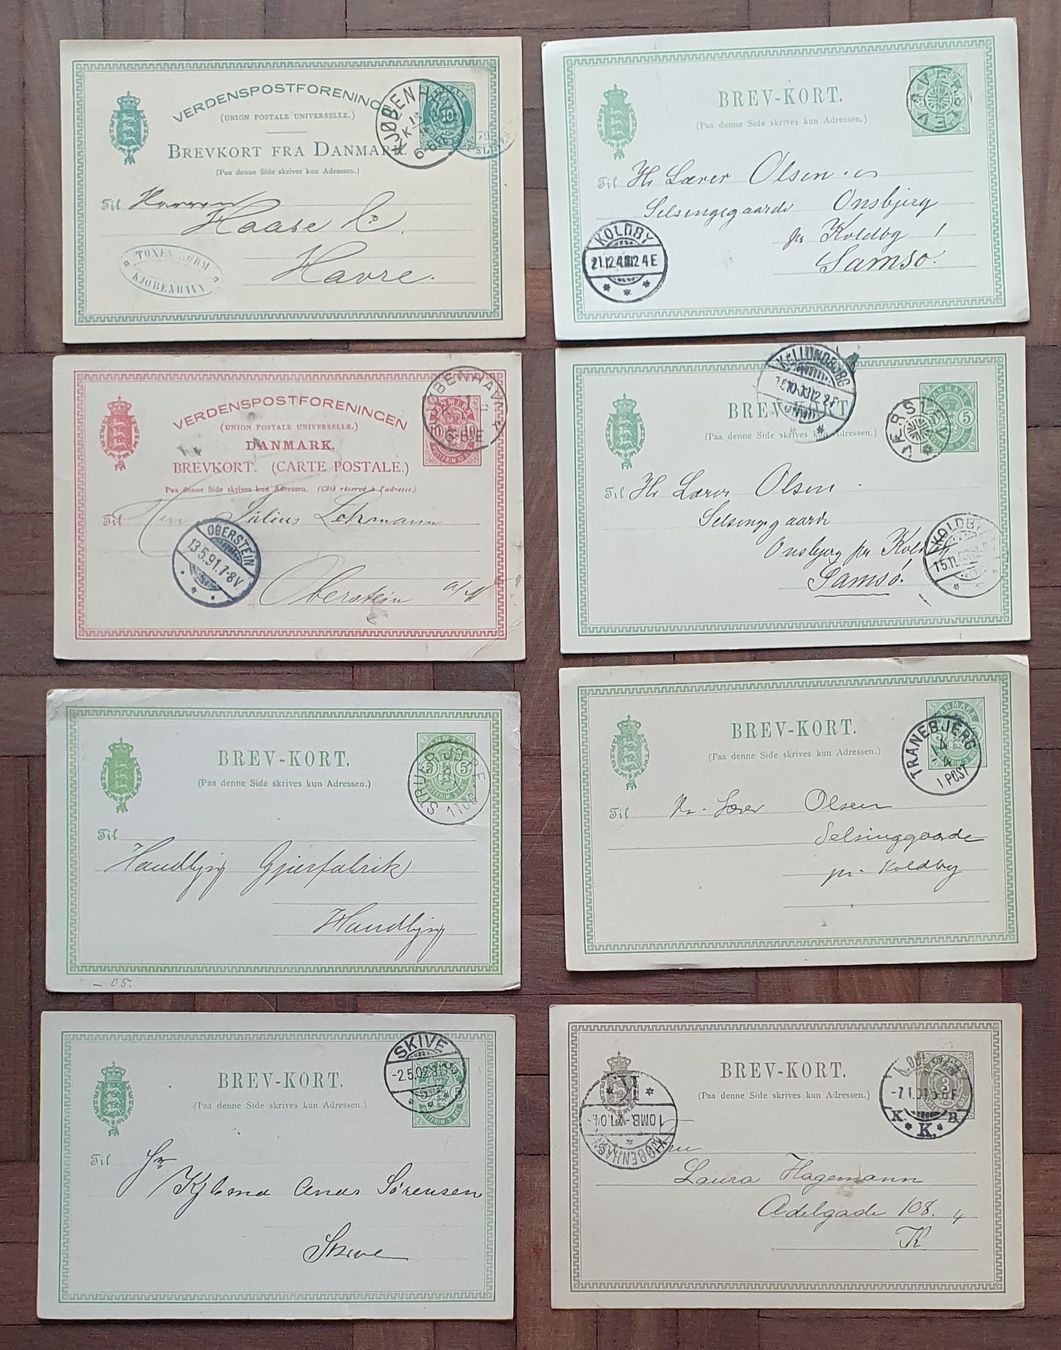 VERDENSPOSTFORENINGEN
(UNION POSTALE UNIVERSELLE.)
BREVKORT FRA DANMARK
(Paa denne Side skrives kun Adressen.)
KJØBENHAVN
Til
Haase Co
Havre.
KJØBENHAVN
BREV-KORT.
(Paa denne Side skrives kun Adressen.)
VÆRSLEV
Til Hr Lærer Olsen
Selsinggaarde Onsbjerg
pr Koldby
Samsø.
KOLDBY
VERDENSPOSTFORENINGEN
(UNION POSTALE UNIVERSELLE.)
DANMARK.
BREVKORT. (CARTE POSTALE.)
Paa denne Side skrives kun Adressen. (Côté réservé à l'adresse)
KJØBENHAVN
DANMARK
10 10
Til Herr Julius Lehmann
Oberstein a/N
OBERSTEIN
13.5.91.7-8V
BREV-KORT
(Paa denne Side skrives kun Adressen.)
KALLUNDBORG
DANMARK
5
VÆRSLEV
Til Hr Lærer Olsen
Selsinggaarde
Onsbjerg pr Koldby
Samsø.
KOLDBY
BREV-KORT.
(Paa denne Side skrives kun Adressen.)
5 5
STRUER
Til
Handbjerg
Handbjerg
-05.
BREV-KORT.
(Paa denne Side skrives kun Adressen.)
DANMARK
TRANEBJERG
14
4
1 POST
Til Hr. Lærer Olsen
Selsinggaarde
pr. Koldby
BREV-KORT.
(Paa denne Side skrives kun Adressen.)
SKIVE
-2.5.02
5
Til Hr
Anders Sørensen
Skive
BREV-KORT.
(Paa denne Side skrives kun Adressen.)
3
K
-7.1.04
K
KJØBENHAVN
1 OMB.
Laura Hagemann
Adelgade 108. 4
K